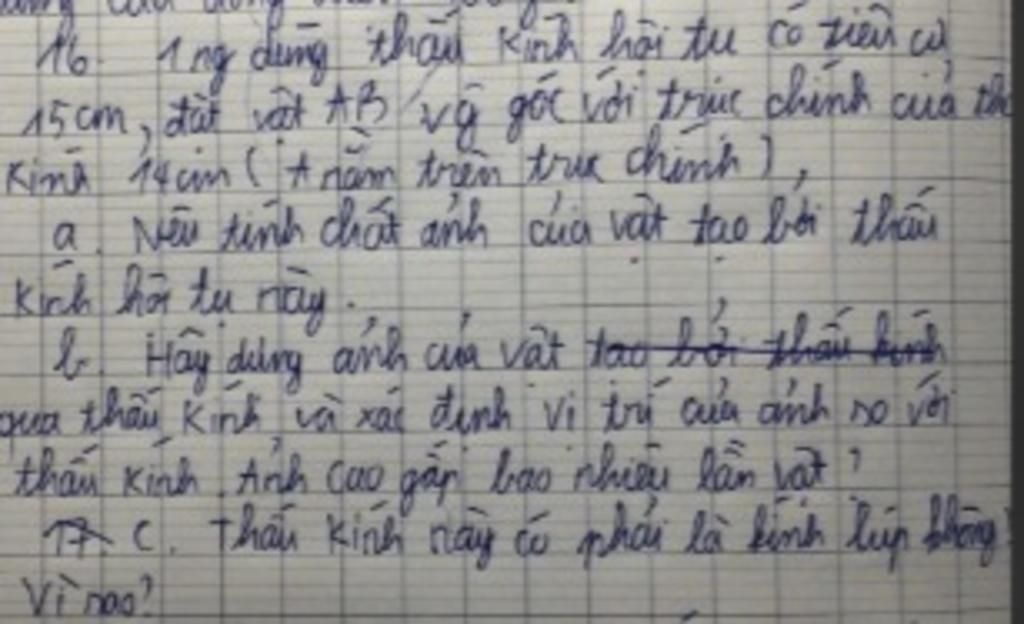 16. 1 ng dùng thấu kính hội tụ có tiêu cự
15cm, đặt vật AB vg góc với trục chính của th
kính 14cm (A nằm trên trục chính),
a. Nêu tính chất ảnh của vật tạo bởi thấu
kính hội tụ này.
b. Hãy dựng ảnh của vật tạo bởi thấu kính
qua thấu kính và xác định vị trí của ảnh so với
thấu kính. Ảnh cao gấp bao nhiêu lần vật?
17. C. Thấu kính này có phải là kính lúp không?
Vì sao?